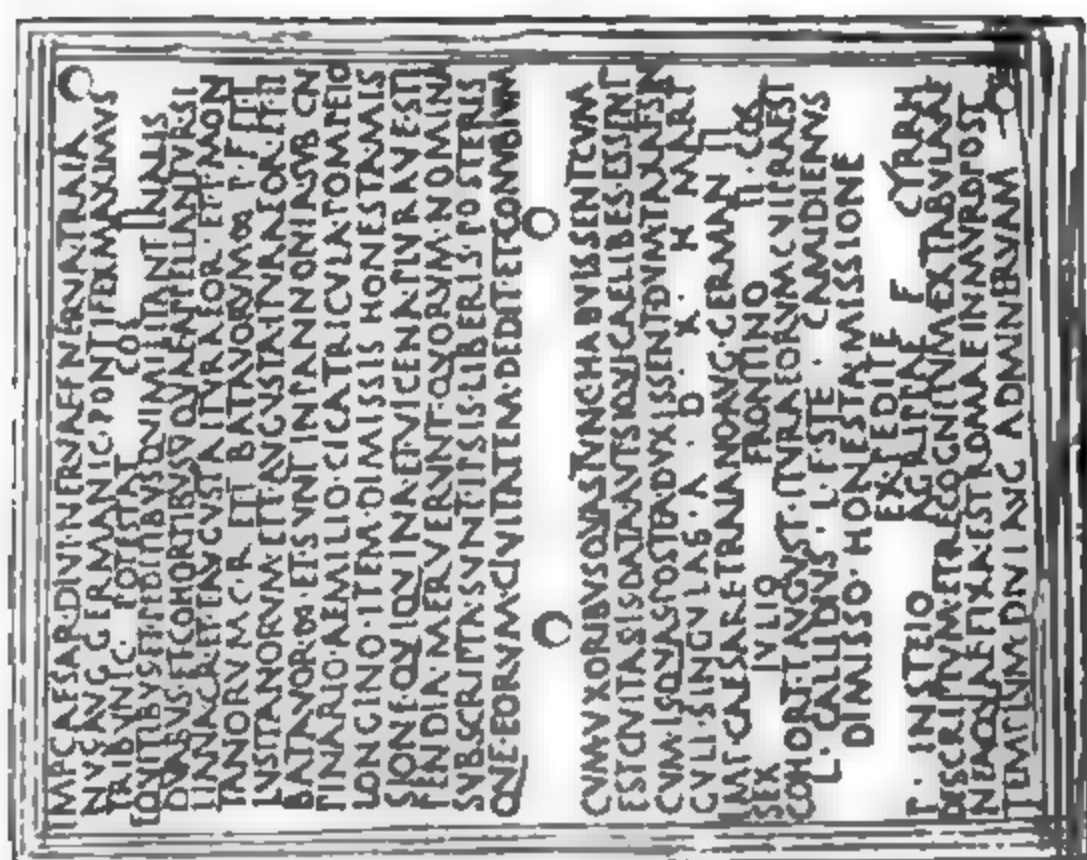 IMP CAESAR DIVI NERVAE F NERVA TRAIA
NVS AVG GERMANIC PONTIFEX MAXIMVS
TRIBVNIC POTESTAT COS II
EQVITIBVS ET PEDITIBVS QVI MILITANT IN ALIS
DVABVS ET COHORTIBVS
TANORVM C R ET BATAVORVM
LVSITANORVM ET AVGVSTA ITVRAEOR
BATAVOR ET SVNT IN PANNONIA SVB CN
PINARIO AEMILIO CICATRICVLA POMPEIO
LONGINO ITEM DIMISSIS HONESTA MIS
SIONE QVI QVINA ET VICENA PLVRAVE STI
PENDIA MERVERVNT QVORVM NOMINA
SVBSCRIPTA SVNT IPSIS LIBERIS POSTERIS
QVE EORVM CIVITATEM DEDIT ET CONVBIVM
CVM VXORIBVS QVAS TVNC HABVISSENT CVM
EST CIVITAS IS DATA AVT SIQVI CAELIBES ESSENT
CVM IS QVAS POSTEA DVXISSENT DVMTAXAT SIN
GVLI SINGVLAS A D X K MART
IMP CAESARE TRAIANO AVG GERMAN II COS
SEX IVLIO FRONTINO II
COHORT I AVGVST ITVRAEORVM CVI PRAEST
L CALLIDIVS L F STE CAMIDIENVS
DIMISSO HONESTA MISSIONE
EX PEDITE
F CYRRH
P INSTEIO AGRIPPAE F
DESCRIPTVM ET RECOGNITVM EX TABVLA AE
NEA QVAE FIXA EST ROMAE IN MVRO POST
TEMPLVM DIVI AVG AD MINERVAM